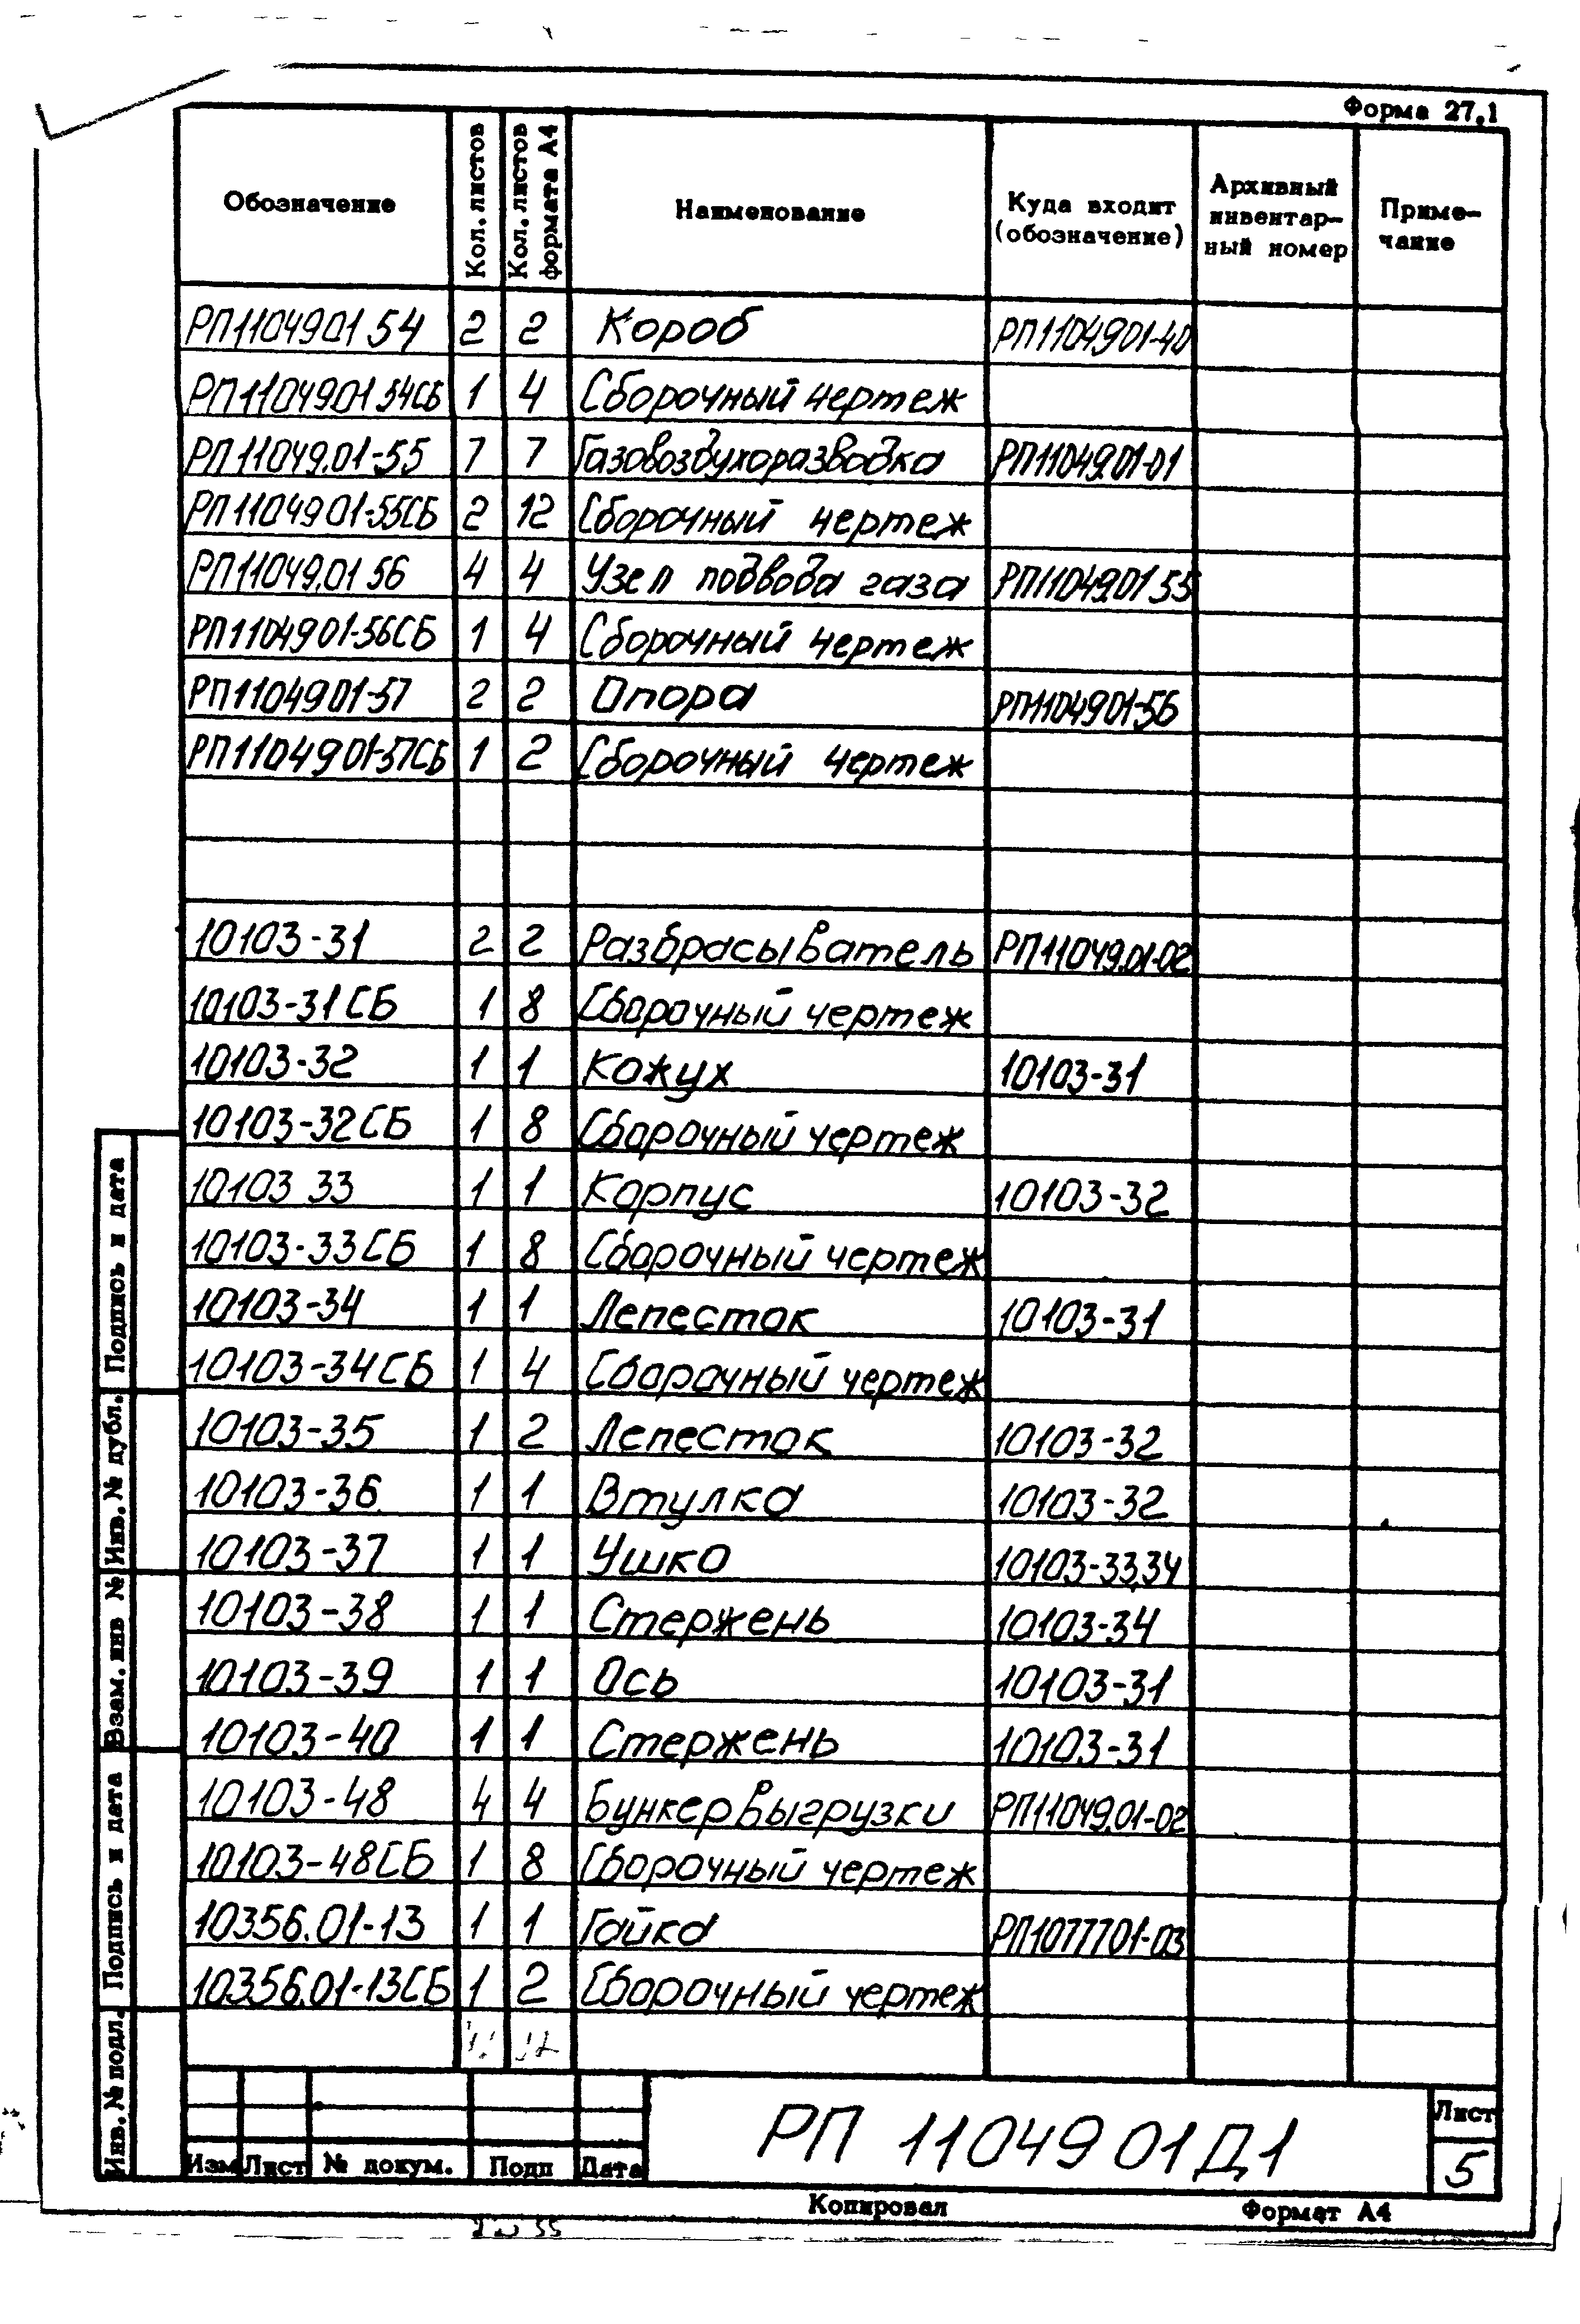 Форма 27.1
Обозначение Кол. листов Кол. листов формата А4 Наименование Куда входит (обозначение) Архивный инвентар-ный номер Приме-чание
РП1104901 54 2 2 Короб РП1104901-40
РП1104901 54СБ 1 4 Сборочный чертеж
РП11049.01-55 7 7 Газовоздухоразводка РП11049.01-01
РП1104901-55СБ 2 12 Сборочный чертеж
РП11049.01 56 4 4 Узел подвода газа РП11049.01 55
РП1104901-56СБ 1 4 Сборочный чертеж
РП1104901-57 2 2 Опора РП1104901-56
РП1104901-57СБ 1 2 Сборочный чертеж
10103-31 2 2 Разбрасыватель РП11049.01-02
10103-31СБ 1 8 Сборочный чертеж
10103-32 1 1 Кожух 10103-31
10103-32СБ 1 8 Сборочный чертеж
10103 33 1 1 Корпус 10103-32
10103-33СБ 1 8 Сборочный чертеж
10103-34 1 1 Лепесток 10103-31
10103-34СБ 1 4 Сборочный чертеж
10103-35 1 2 Лепесток 10103-32
10103-36 1 1 Втулка 10103-32
10103-37 1 1 Ушко 10103-33,34
10103-38 1 1 Стержень 10103-34
10103-39 1 1 Ось 10103-31
10103-40 1 1 Стержень 10103-31
10103-48 4 4 Бункер выгрузки РП11049.01-02
10103-48СБ 1 8 Сборочный чертеж
10356.01-13 1 1 Гайка РП1077701-03
10356.01-13СБ 1 2 Сборочный чертеж
Подпись и дата
Инв. № публ.
Взам. инв №
Подпись и дата
Инв. № подл.
Изм Лист № докум. Подп Дата
РП 1104901Д1
Лист
5
Копировал Формат А4